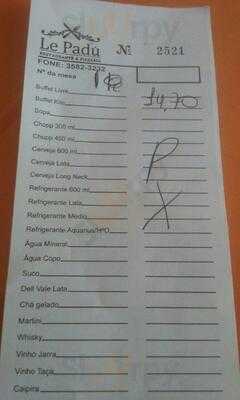 Le Padú
Nº 2521
RESTAURANTE & PIZZARIA
FONE: 3582-3232
Nº da mesa
Buffet Livre 54,70
Buffet Kilo
Sopa
Chopp 300 ml
Chopp 450 ml
Cerveja 600 ml P
Cerveja Lata
Cerveja Long Neck
Refrigerante 600 ml X
Refrigerante Lata
Refrigerante Médio
Refrigerante Aquarius/H²O
Água Mineral
Água Copo
Suco
Dell Vale Lata
Chá gelado
Martini
Whisky
Vinho Jarra
Vinho Taça
Caipira